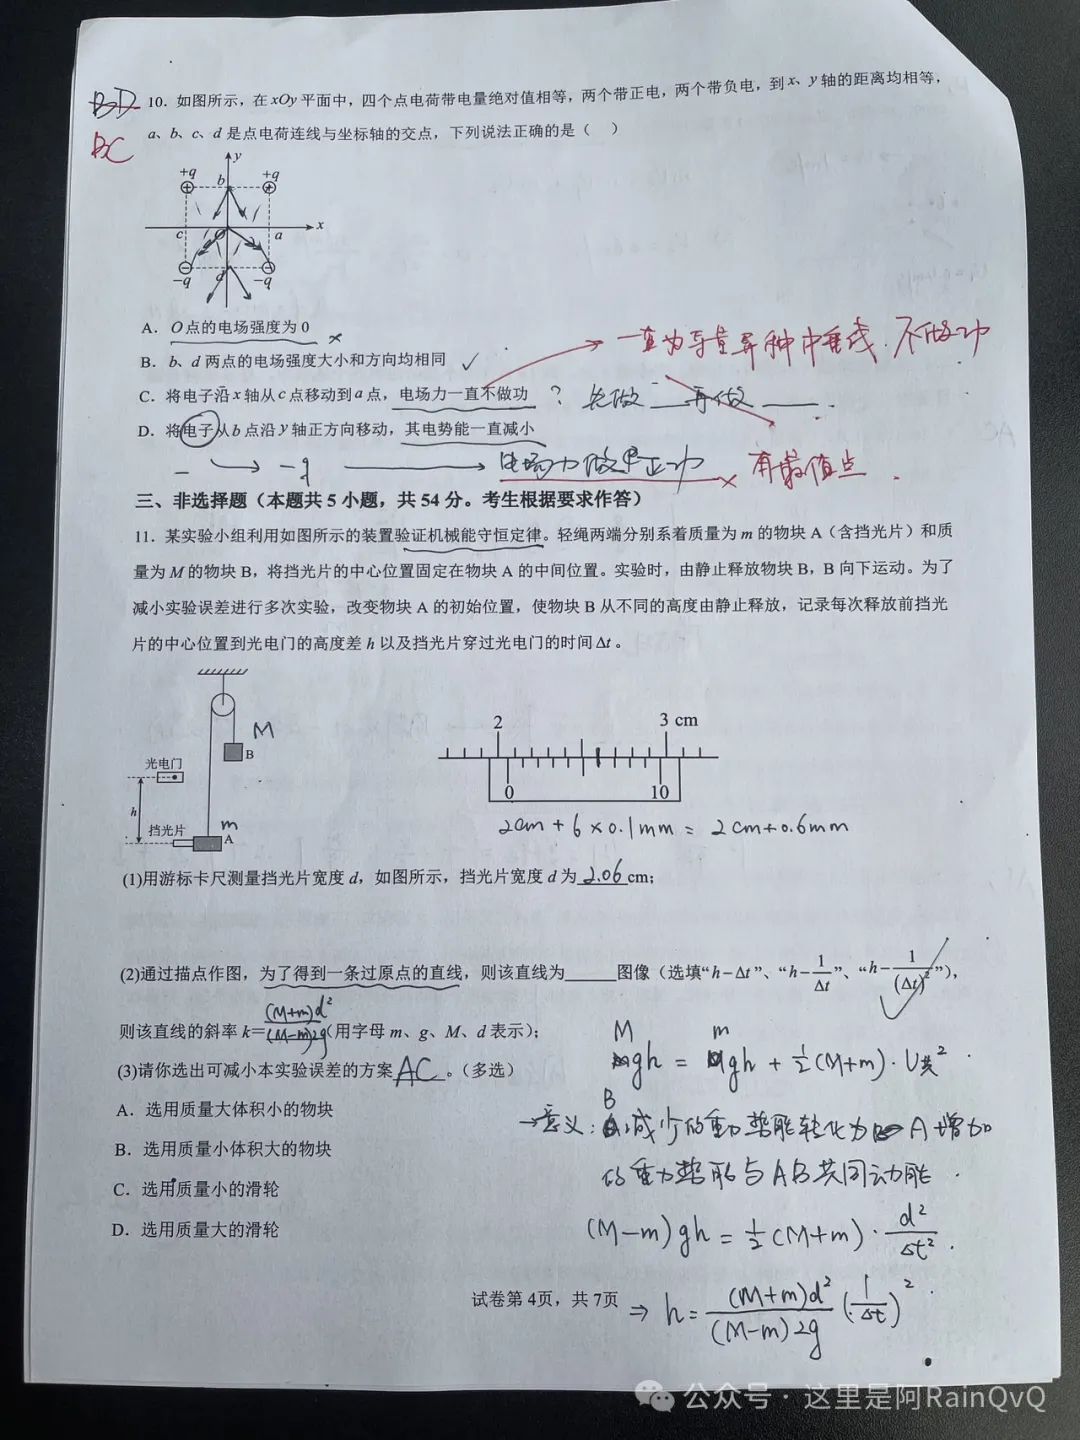 BD
BC
10. 如图所示，在xOy平面中，四个点电荷带电量绝对值相等，两个带正电，两个带负电，到x、y轴的距离均相等，
a、b、c、d是点电荷连线与坐标轴的交点，下列说法正确的是（ ）
y
+q b +q
c O a x
-q d -q
A．O点的电场强度为0 ×
B．b、d两点的电场强度大小和方向均相同 ✓
一直为等量异种中垂线．不做功
C．将电子沿x轴从c点移动到a点，电场力一直不做功 ？先做__再做__．
D．将电子从b点沿y轴正方向移动，其电势能一直减小
- → -q → 电场力做正功 × 有最值点．
三、非选择题（本题共5小题，共54分。考生根据要求作答）
11．某实验小组利用如图所示的装置验证机械能守恒定律。轻绳两端分别系着质量为m的物块A（含挡光片）和质
量为M的物块B，将挡光片的中心位置固定在物块A的中间位置。实验时，由静止释放物块B，B向下运动。为了
减小实验误差进行多次实验，改变物块A的初始位置，使物块B从不同的高度由静止释放，记录每次释放前挡光
片的中心位置到光电门的高度差h以及挡光片穿过光电门的时间Δt。
M
B
光电门
h
挡光片
m
A
2 3 cm
0 10
2cm + 6×0.1mm = 2cm+0.6mm
(1)用游标卡尺测量挡光片宽度d，如图所示，挡光片宽度d为 2.06 cm；
(2)通过描点作图，为了得到一条过原点的直线，则该直线为______图像（选填“h-Δt”、“h-1/Δt”、“h-1/(Δt)²”），✓
则该直线的斜率k= (M+m)d²/(M-m)2g (用字母m、g、M、d表示)；
(3)请你选出可减小本实验误差的方案 AC 。（多选）
A．选用质量大体积小的物块
B．选用质量小体积大的物块
C．选用质量小的滑轮
D．选用质量大的滑轮
Mgh = mgh + ½(M+m)·v共²．
→意义：B减少的重力势能转化为A增加
的重力势能与AB共同动能．
(M-m)gh = ½(M+m)·d²/Δt²．
⇒ h = (M+m)d²/(M-m)2g (1/Δt)²．
试卷第4页，共7页
公众号·这里是阿RainQvQ